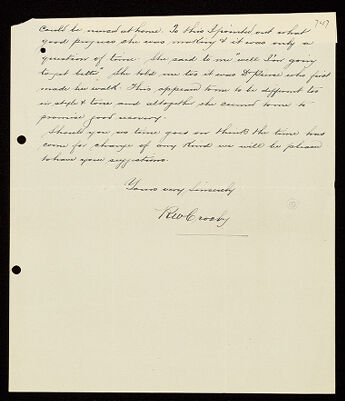 could be nursed at home. To this I pointed out what
good progress she was making & it was only a
question of time. She said to me "well I'm going
to get better" She told me too it was Dr Pierce who first
made her walk. This appeared to me to be different too
in style & tone and altogether she seemed to me to
promise good recovery.
Should you as time goes on think the time has
come for change of any kind we will be pleased
to have your suggestions.
Yours very sincerely
Crosby